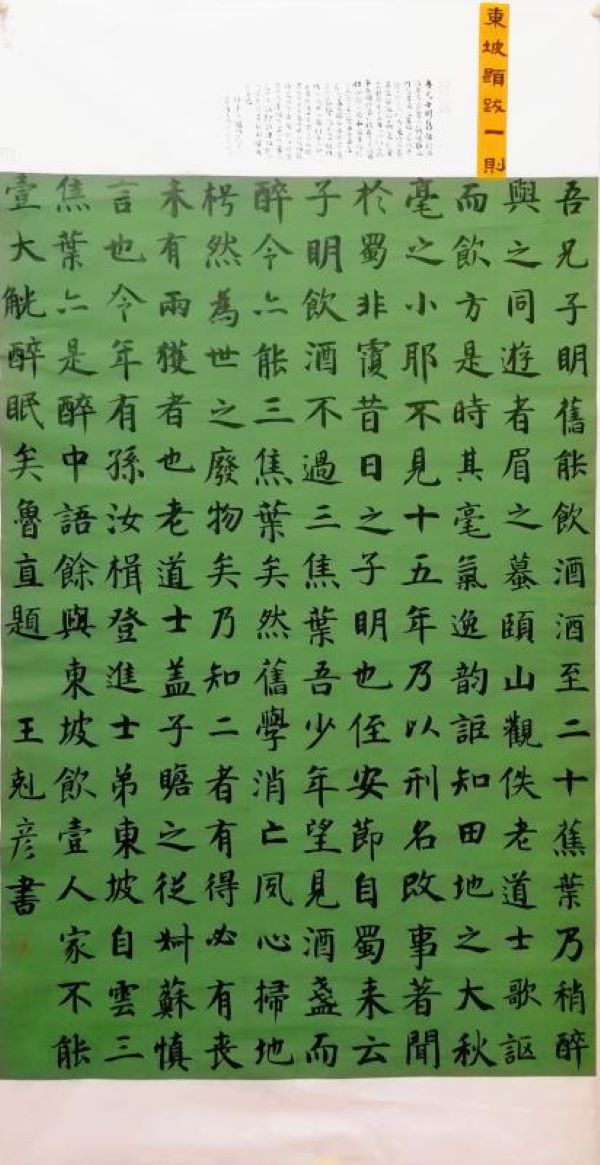 東坡題跋一則
吾兄子明舊能飲酒酒至二十蕉葉乃稍醉
與之同遊者眉之蟇頤山觀佚老道士歌謳
而飲方是時其毫氣逸韵詎知田地之大秋
毫之小耶不見十五年乃以刑名政事著聞
於蜀非昔日之子明也侄安節自蜀来云
子明飲酒不過三焦葉吾少年望見酒盞而
醉今亦能三焦葉矣然舊學消亡夙心掃地
枵然為世之廢物矣乃知二者有得必有丧
未有兩獲者也老道士盖子瞻之從叔蘇慎
言也今年有孫汝楫登進士弟東坡自雲三
焦葉亦是醉中語餘與東坡飲壹人家不能
壹大觥醉眠矣魯直題 王剋彦書